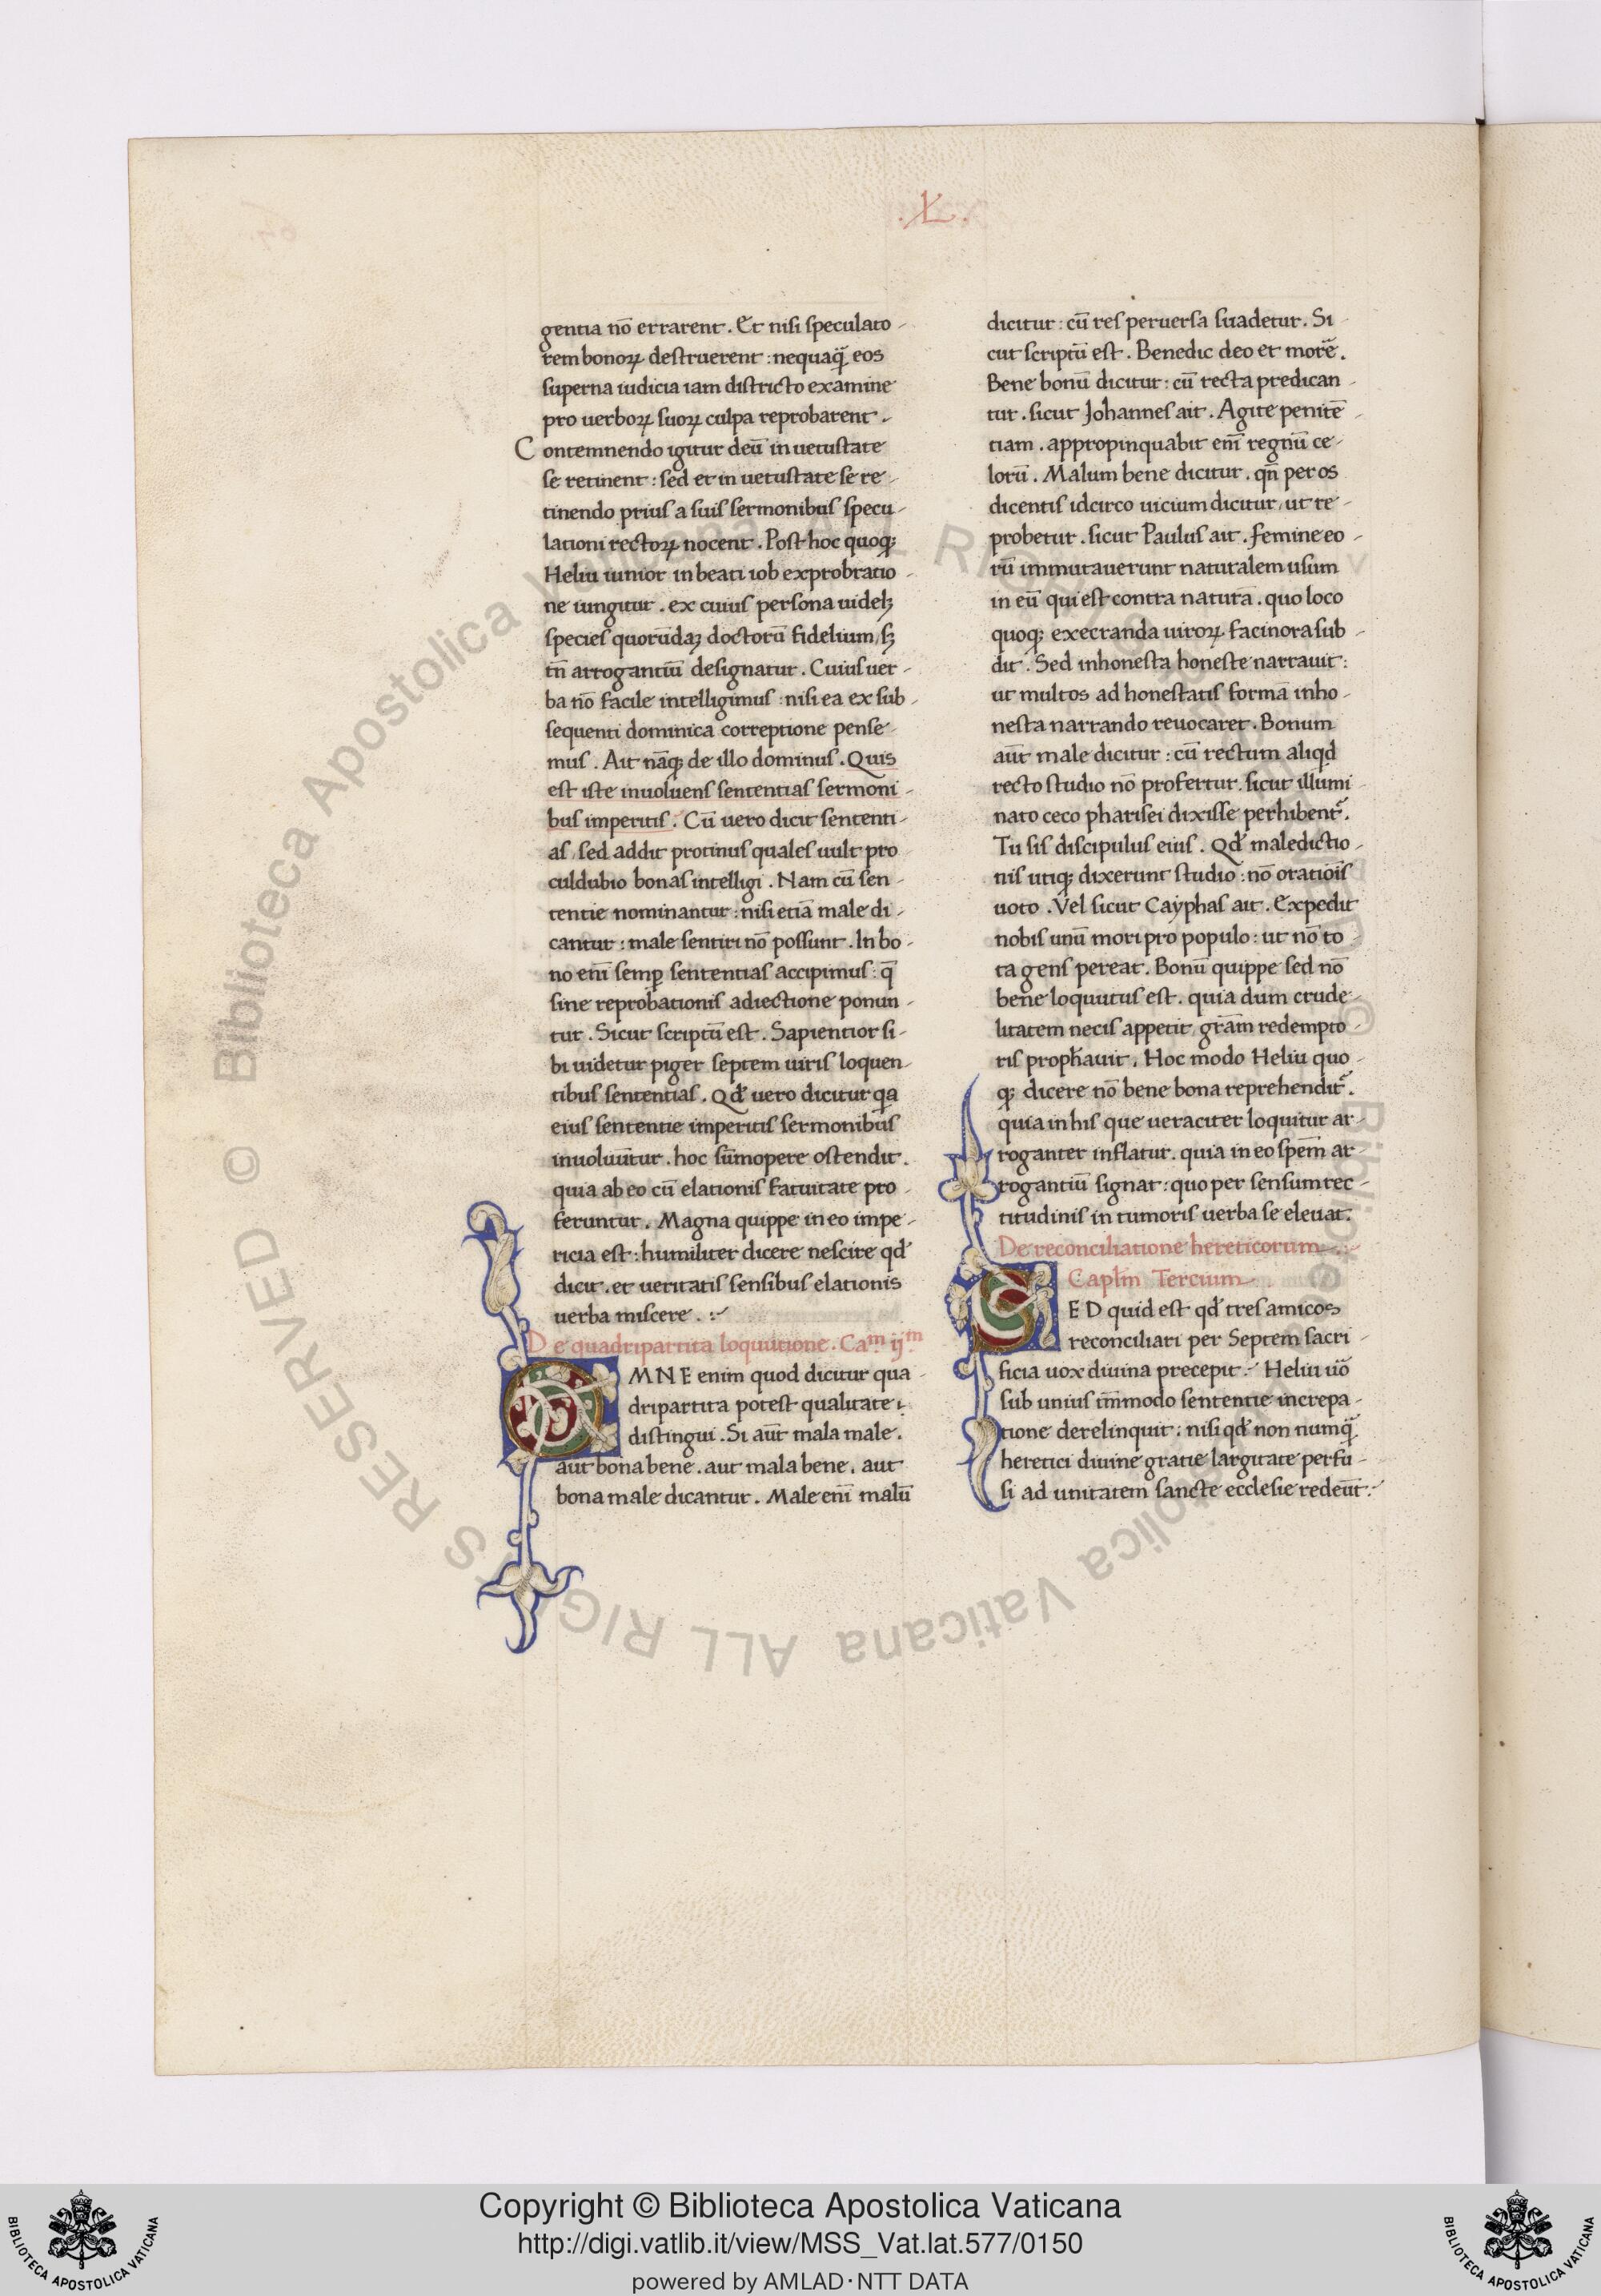 .XL.
gentia nō errarent. Et nisi speculato-
rem bonoꝝ destruerent: nequaq̄ȝ eos
superna iudicia iam districto examine
pro uerboꝝ suoꝝ culpa reprobarent.
Contemnendo igitur deū in uetustate
se retinent: sed et in uetustate se re-
tinendo prius a suis sermonibus specu-
lationi rectoꝝ nocent. Post hoc quoqꝫ
Heliu iunior in beati iob exprobratio-
ne iungitur. ex cuius persona uidelꝫ
species quorūdaꝫ doctorū fidelium, sꝫ
tn̄ arrogantiū designatur. Cuius uer-
ba nō facile intelligimus: nisi ea ex sub-
sequenti dominica correptione pense-
mus. Ait nāqꝫ de illo dominus. Quis
est iste inuoluens sententias sermoni-
bus imperitis. Cū uero dicit sententi-
as, sed addit protinus quales uult pro
culdubio bonas intelligi. Nam cū sen-
tentie nominantur: nisi etiā male di-
cantur: male sentiri nō possunt. In bo-
no enī semꝑ sententias accipimus: q̄
sine reprobationis adiectione ponun-
tur. Sicut scriptū est. Sapientior si-
bi uidetur piger septem uiris loquen-
tibus sententias. Qd̄ uero dicitur qa
eius sententie imperitis sermonibus
inuoluūtur. hoc sūmopere ostendit.
quia ab eo cū elationis fatuitate pro-
feruntur. Magna quippe in eo impe-
ricia est: humiliter dicere nescire qd̄
dicit. et ueritatis sensibus elationis
uerba miscere.
De quadripartita loquutione. Caᵐ. ijᵐ.
OMNE enim quod dicitur qua-
dripartita potest qualitate
distingui. Si aūt mala male.
aut bona bene. aut mala bene. aut
bona male dicantur. Male enī malū
dicitur: cū res peruersa suadetur. Si-
cut scriptū est. Benedic deo et morē.
Bene bonū dicitur: cū recta predican-
tur. sicut Johannes ait. Agite penitē-
tiam. appropinquabit enī regnū ce-
lorū. Malum bene dicitur. qn̄ per os
dicentis idcirco uicium dicitur, ut re-
probetur. sicut Paulus ait. femine eo-
rū immutauerunt naturalem usum
in eū qui est contra natura. quo loco
quoqꝫ execranda uiroꝝ facinora sub-
dit. Sed inhonesta honeste narrauit:
ut multos ad honestatis formā inho-
nesta narrando reuocaret. Bonum
aūt male dicitur: cū rectum aliqd
recto studio nō profertur. sicut illumi-
nato ceco pharisei dixisse perhibent̄.
Tu sis discipulus eius. Qd̄ maledictio-
nis utiqꝫ dixerunt studio: nō oratiōis
uoto. Vel sicut Cayphas ait. Expedit
nobis unū mori pro populo: ut nō to-
ta gens pereat. Bonū quippe sed nō
bene loquutus est. quia dum crude-
litatem necis appetit, grām redempto-
ris proph̄auit. Hoc modo Heliu quo-
qꝫ dicere nō bene bona reprehendit̄.
quia in his que ueraciter loquitur ar-
roganter inflatur. quia in eo spēm ar-
rogantiū signat: quo per sensum rec-
titudinis in tumoris uerba se eleuat.
De reconciliatione hereticorum.
Caplm̄ Tercium
SED quid est qd̄ tres amicos
reconciliari per Septem sacri-
ficia uox diuina precepit. Heliu uō
sub unius tm̄modo sententie increpa-
tione derelinquit. nisi qd̄ non numq̄ȝ
heretici diuine gratie largitate perfu-
si ad unitatem sancte ecclesie redeūt.
Copyright © Biblioteca Apostolica Vaticana
http://digi.vatlib.it/view/MSS_Vat.lat.577/0150
powered by AMLAD·NTT DATA
BIBLIOTECA APOSTOLICA VATICANA
BIBLIOTECA APOSTOLICA VATICANA